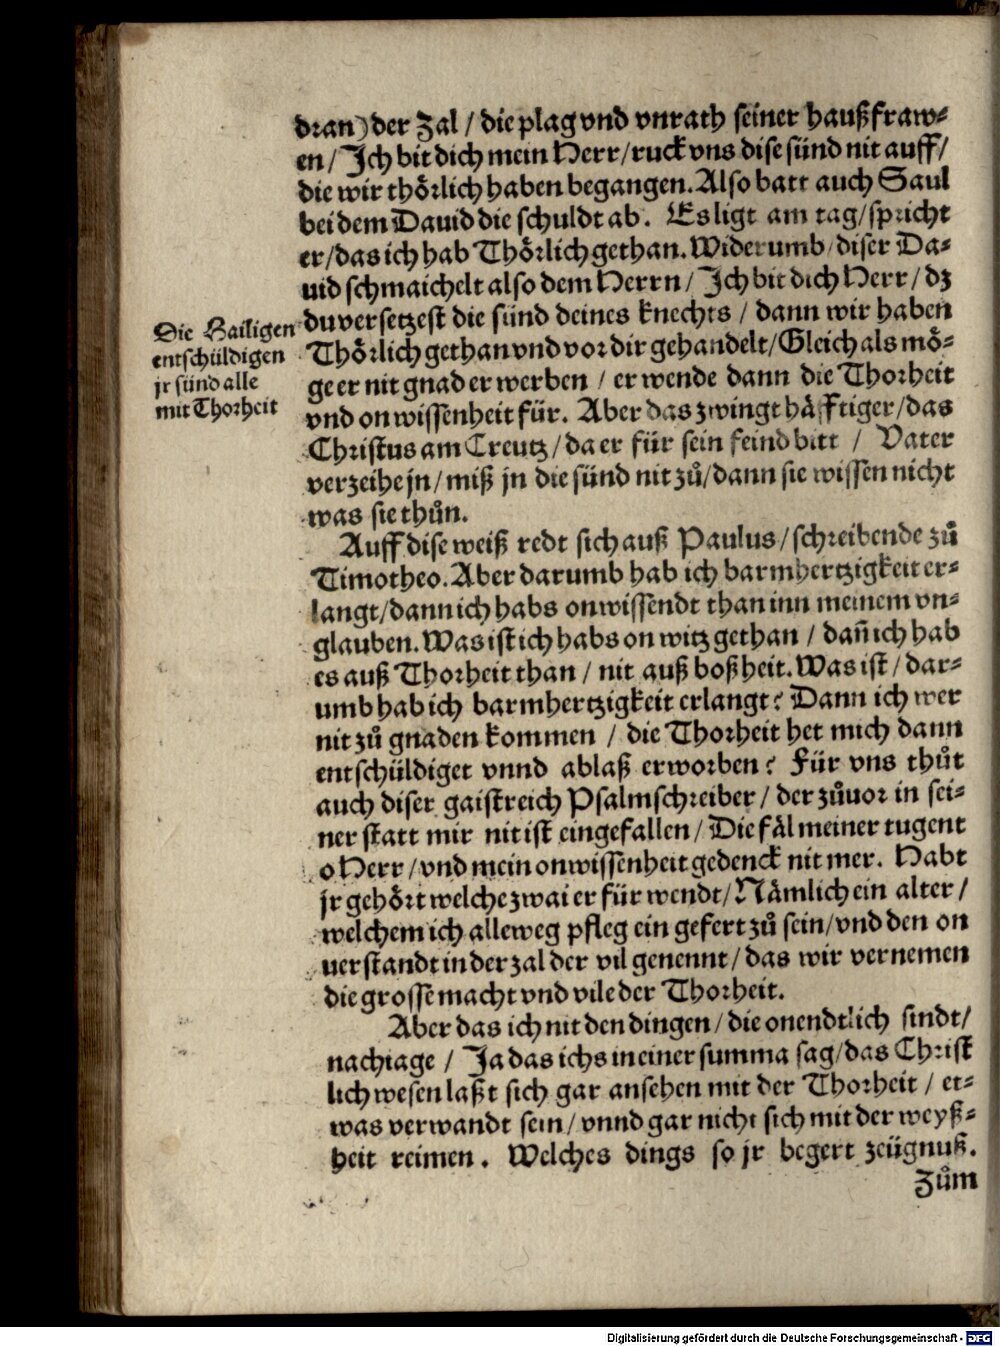 dran) der Zal / die plag vnd vnrath seiner haußfraw⸗
en / Jch bit dich mein Herr / ruck vns dise sünd nit auff /
die wir thörlich haben begangen. Also batt auch Saul
bei dem Dauid die schuldt ab. Es ligt am tag / spricht
er / das ich hab Thörlich gethan. Widerumb / diser Da⸗
uid schmaichelt also dem Herrn / Jch bit dich Herr / dz
du versetzest die sünd deines knechts / dann wir haben
Thörlich gethan vnd vor dir gehandelt / Gleich als mö⸗
ge er nit gnad erwerben / er wende dann die Thorheit
vnd onwissenheit für. Aber das zwingt häfftiger / das
Christus am Creutz / da er für sein feind bitt / Vater
verzeihe jn / miß jn die sünd nit zů / dann sie wissen nicht
was sie thůn.
Die Hailigen
entschüldigen
jr sünd alle
mit Thorheit
Auff dise weiß redt sich auß Paulus / schreibende zů
Timotheo. Aber darumb hab ich barmhertzigkeit er⸗
langt / dann ich habs onwissendt than inn meinem vn⸗
glauben. Was ist ich habs on witz gethan / dañ ich hab
es auß Thorheit than / nit auß boßheit. Was ist / dar⸗
umb hab ich barmhertzigkeit erlangt? Dann ich wer
nit zů gnaden kommen / die Thorheit het mich dann
entschüldiget vnnd ablaß erworben? Für vns thůt
auch diser gaistreich Psalmschreiber / der zůuor in sei⸗
ner statt mir nit ist eingefallen / Die fäl meiner tugent
o Herr / vnd mein onwissenheit gedenck nit mer. Habt
jr gehört welche zwai er für wendt / Nämlich ein alter /
welchem ich alleweg pfleg ein gefert zů sein / vnd den on
uerstandt in der zal der vil genennt / das wir vernemen
die grosse macht vnd vile der Thorheit.
Aber das ich nit den dingen / die onendtlich sindt /
nachiage / Ja das ichs in einer summa sag / das Christ
lich wesen laßt sich gar ansehen mit der Thorheit / et⸗
was verwandt sein / vnnd gar nicht sich mit der weyß⸗
heit reimen. Welches dings so jr begert zeügnuß.
Zům
Digitalisierung gefördert durch die Deutsche Forschungsgemeinschaft - DFG